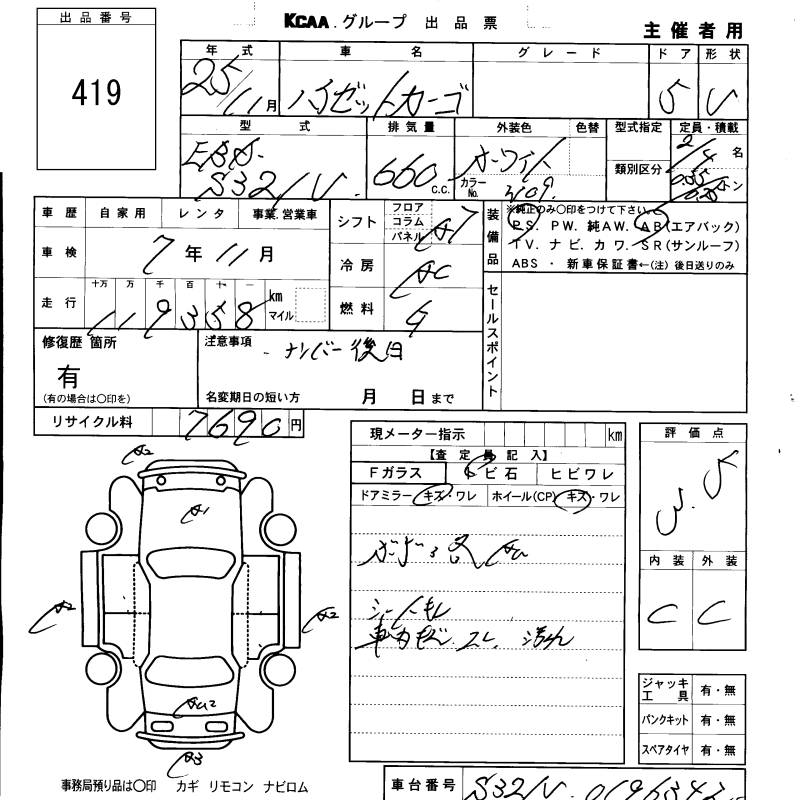 出品番号
419
KCAA グループ 出品票
主催者用
年式 車名 グレード ドア 形状
25/11月 ハイゼットカーゴ 5 V
型式 排気量 外装色 色替 型式指定 定員・積載
EBD-
S321V 660 C.C. ホワイト 2/4名
カラーNo. W09 類別区分 トン
車歴 自家用 レンタ 事業.営業車
シフト フロア コラム パネル AT
装備品
※純正のみ〇印をつけて下さい。
PS. PW. 純AW. AB(エアバック)
TV. ナビ. カワ. SR(サンルーフ)
ABS ・ 新車保証書←(注)後日送りのみ
車検 7年11月
冷房 AC
走行 十万 万 千 百 十 一
119358 km マイル
燃料 G
セールスポイント
修復歴 箇所
有
(有の場合は〇印を)
注意事項
ナンバー後日
名変期日の短い方 月 日まで
リサイクル料 7690円
現メーター指示 km
【査定員記入】
Fガラス トビ石 ヒビワレ
ドアミラー キズ・ワレ ホイール(CP) キズ・ワレ
評価点
3.5
内装 外装
C C
A2
A1
A2
A2
AU2
A3
各AU
シート
車内
ジャッキ工具 有・無
パンクキット 有・無
スペアタイヤ 有・無
事務局預り品は〇印 カギ リモコン ナビロム
車台番号 S321V-